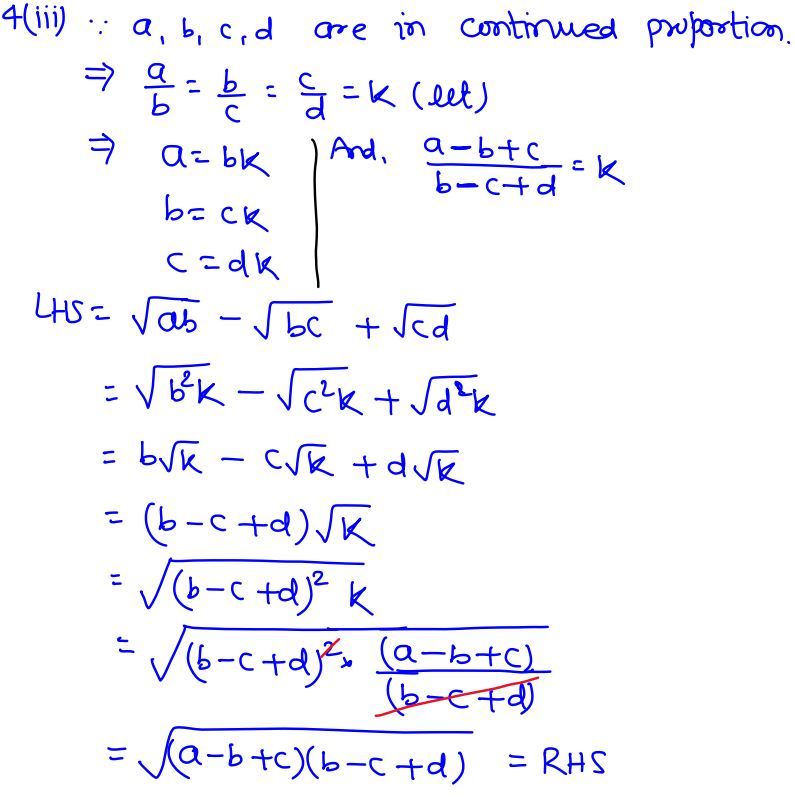 4(iii) ∵ a, b, c, d are in continued proportion.
⇒ a/b = b/c = c/d = k (let)
⇒ a = bk | And, (a-b+c)/(b-c+d) = k
b = ck
c = dk
LHS = √(ab) - √(bc) + √(cd)
= √(b²k) - √(c²k) + √(d²k)
= b√k - c√k + d√k
= (b-c+d)√k
= √((b-c+d)² k)
= √((b-c+d)² × (a-b+c)/(b-c+d))
= √((a-b+c)(b-c+d)) = RHS